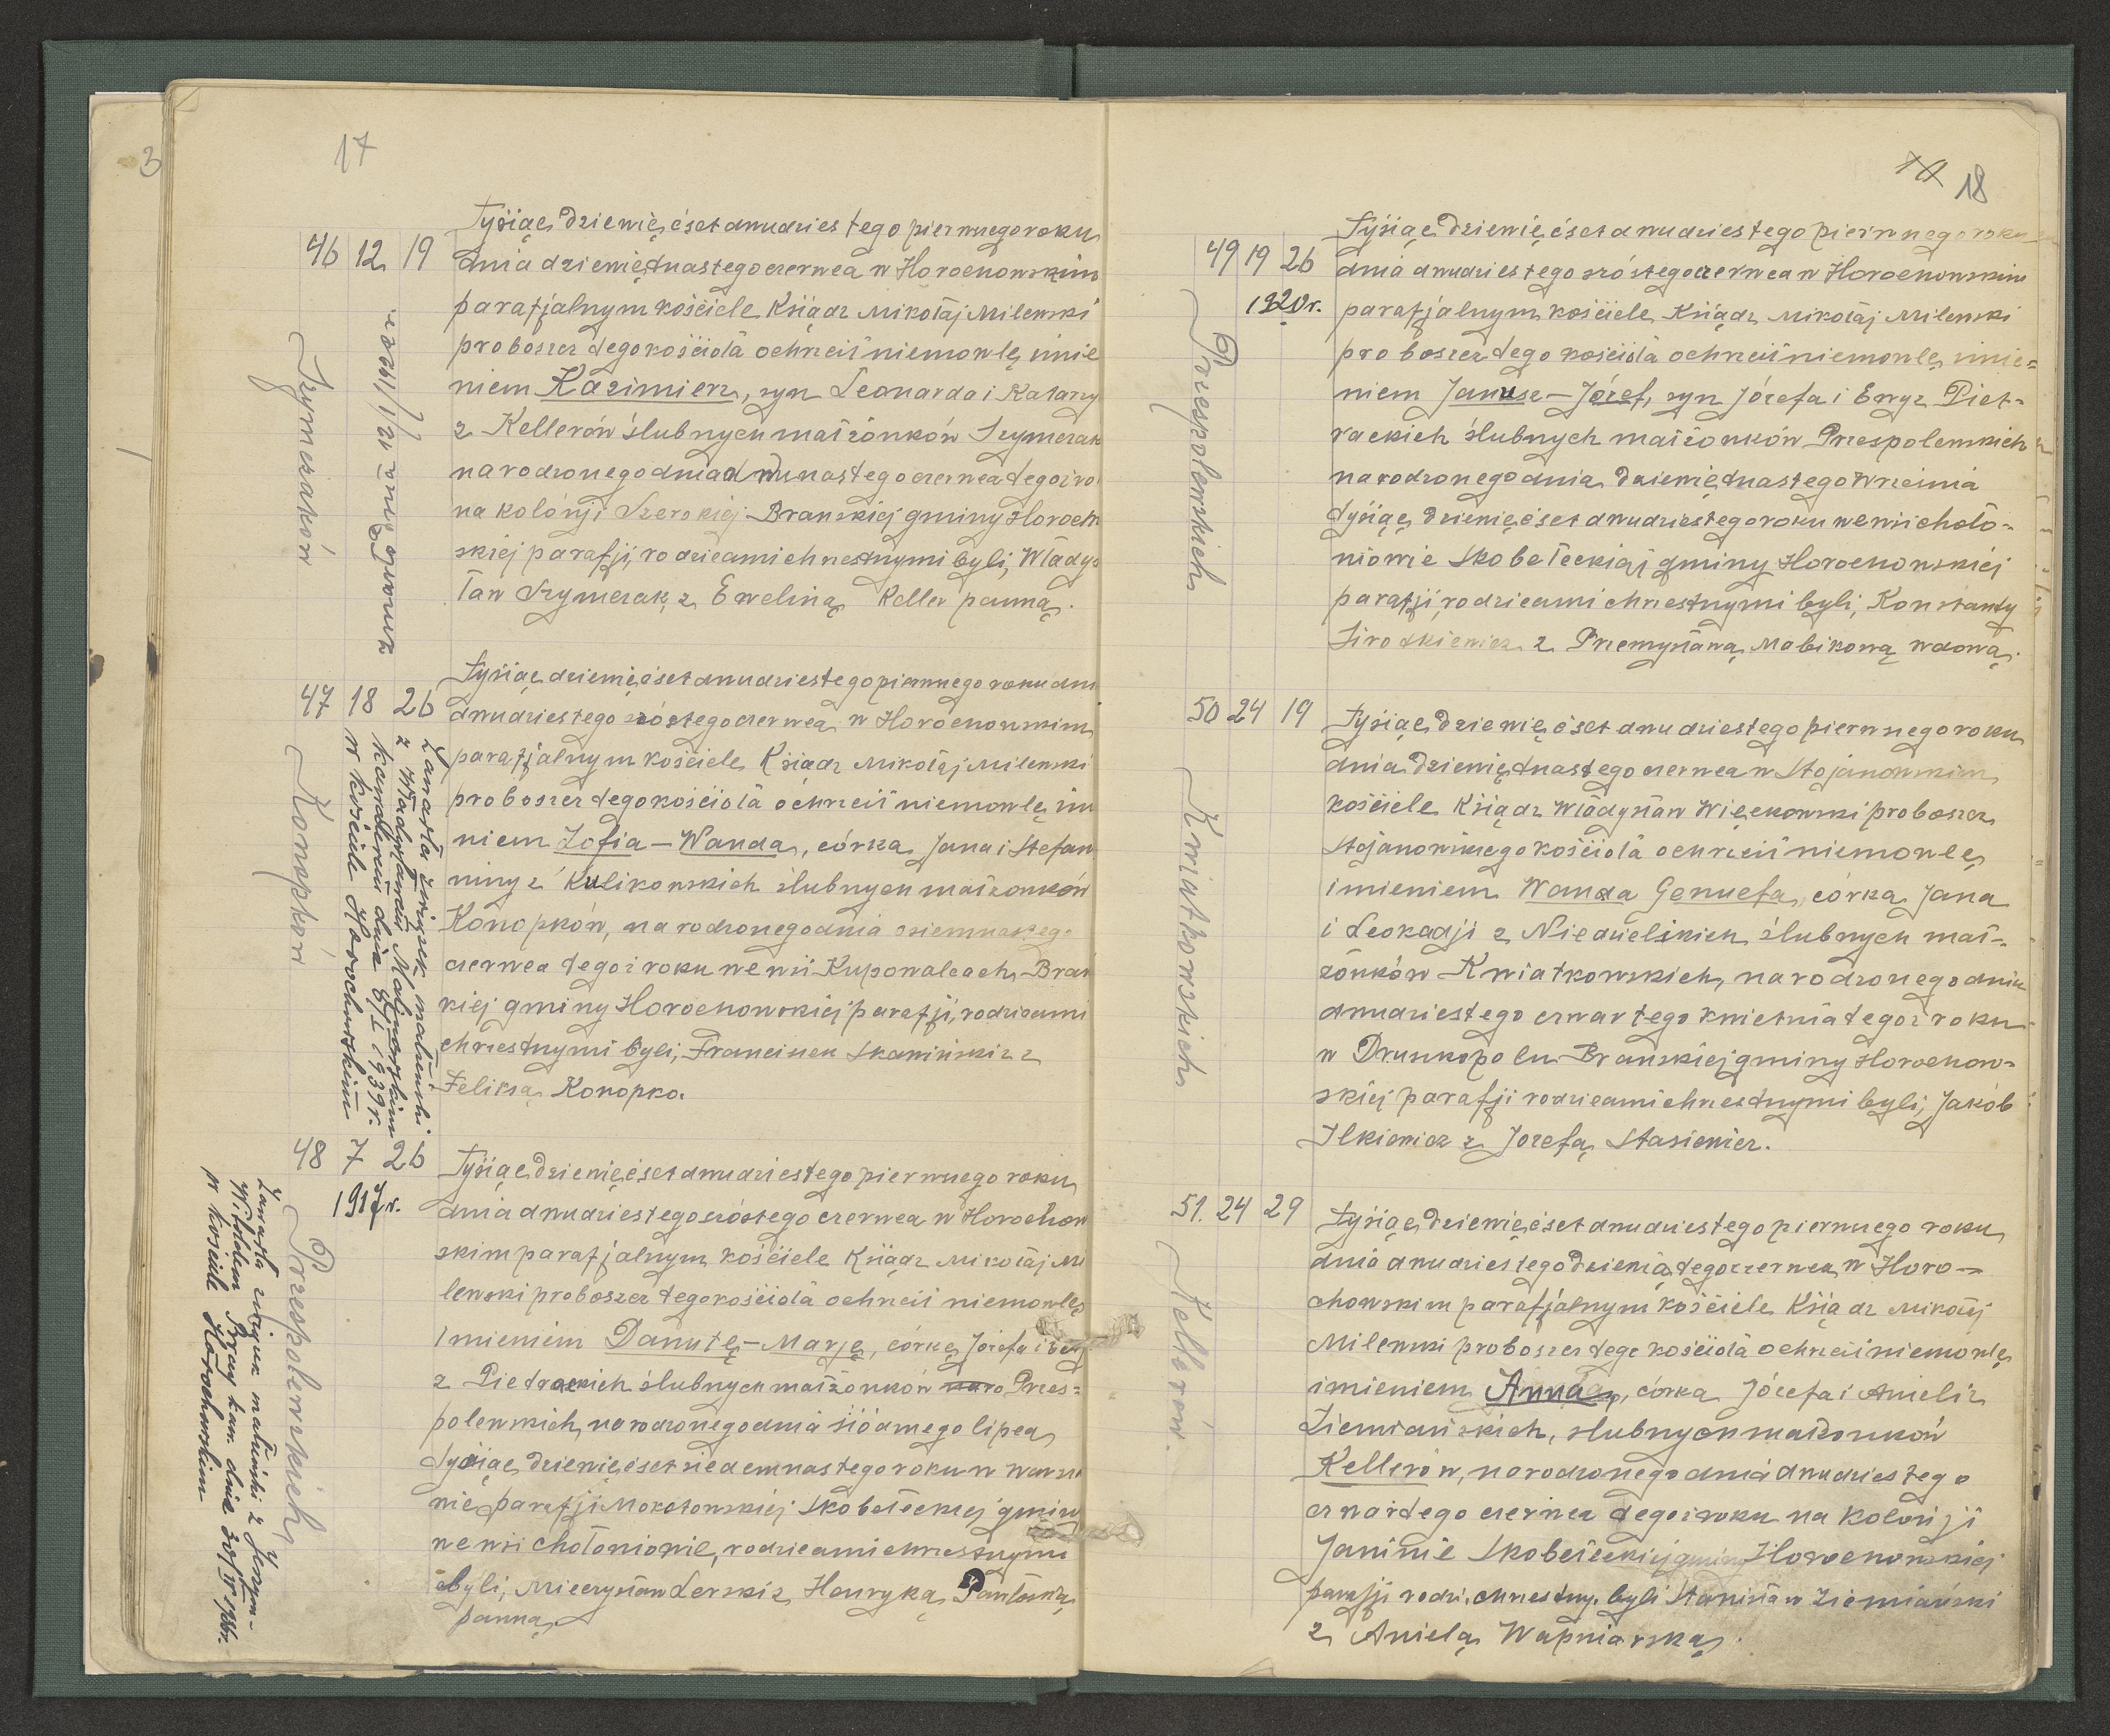 3
17
Tysiąc dziewięćset dwudziestego pierwszego roku
46 12 19
dnia dziewiętnastego czerwca w Horochowskim
parafjalnym kościele Ksiądz Mikołaj Milewski
proboszcz tego kościoła ochrzcił niemowlę imie
niem Kazimierz, syn Leonarda i Katarzy
z Kellerów ślubnych małżonków Szymczak
narodzonego dnia dwunastego czerwca tegoż ro
na kolonji Szerokiej Brańskiej gminy Horoch
skiej parafji, rodzicami chrzestnymi byli, Włady
ław Szymczak z Eweliną Keller panną.
Szymczaków
Tysiąc dziewięćset dwudziestego pierwszego roku dni
47 18 26
dwudziestego szóstego czerwca w Horochowskim
parafjalnym kościele Ksiądz Mikołaj Milewski
proboszcz tego kościoła ochrzcił niemowlę im
niem Zofia – Wanda, córka Jana i Stefan
niny z Kulikowskich ślubnych małżonków
Konopków, narodzonego dnia osiemnastego
czerwca tegoż roku we wsi Kupowalcach, Brań
kiej gminy Horochowskiej parafji, rodzicami
chrzestnymi byli, Franciszek Skamiński z
Feliksą Konopko.
Konopków
Zawarła związek małżeński
z Władysławem Malinowskim
kawalerem dnia 8/I 1939 r.
w kościele Horochowskim
48 7 26
1917 r.
Tysiąc dziewięćset dwudziestego pierwszego roku
dnia dwudziestego szóstego czerwca w Horochow
skim parafjalnym kościele Ksiądz Mikołaj Mi
lewski proboszcz tego kościoła ochrzcił niemowlę
imieniem Danutę – Marję, córkę Józefa i Ewy
z Pietrackich ślubnych małżonków Przes=
polewskich, narodzonego dnia siódmego lipca
tysiąc dziewięćset siedemnastego roku w Warsza
nie parafji Mokotowskiej Skobełeckiej gminy
we wsi Chołoniowie, rodzicami chrzestnymi
byli, Mieczysław Lerski z Henryką Pawłowską
panną
Przespolewskich
Zawarła związek małżeński z Justyn-
Witoldem kaw. dnia
w kościele Horochowskim
18
Tysiąc dziewięćset dwudziestego pierwszego roku
49 19 26
dnia dwudziestego szóstego czerwca w Horochowskim
1920 r.
parafjalnym kościele Ksiądz Mikołaj Milewski
proboszcz tego kościoła ochrzcił niemowlę imie=
niem Janusz – Józef, syn Józefa i Ewy z Piet-
rackich ślubnych małżonków Przespolewskich
narodzonego dnia dziewiętnastego września
tysiąc dziewięćset dwudziestego roku we wsi Choło-
niowie Skobełeckiej gminy Horochowskiej
parafji, rodzicami chrzestnymi byli, Konstanty
Sirotkiewicz z Przemysławą Mabikową wdową.
Przespolewskich
50 24 19
Tysiąc dziewięćset dwudziestego pierwszego roku
dnia dziewiętnastego czerwca w Stojanowskim
kościele Ksiądz Władysław Więckowski proboszcz
Stojanowskiego kościoła ochrzcił niemowlę
imieniem Wanda Genuefa, córka Jana
i Leokadji z Niedzielskich ślubnych mał-
żonków Kwiatkowskich, narodzonego dnia
dwudziestego czwartego kwietnia tegoż roku
w Druszkopolu Brańskiej gminy Horochow-
skiej parafji rodzicami chrzestnymi byli, Jakób
Ilkiewicz z Józefą Stasiewicz.
Kwiatkowskich
51. 24 29
Tysiąc dziewięćset dwudziestego pierwszego roku
dnia dwudziestego dziewiątego czerwca w Horo-
chowskim parafjalnym kościele Ksiądz Mikołaj
Milewski proboszcz tego kościoła ochrzcił niemowlę
imieniem Anna, córka Józefa i Anieli z
Ziemiańskich, ślubnych małżonków
Kellerów, narodzonego dnia dwudziestego
czwartego czerwca tegoż roku na Kolonji
Janinie Skobełeckiej gminy Horochowskiej
parafji rodzi. chrzestny. byli Stanisław Ziemiański
z Anielą Wapniarską.
Kellerów.